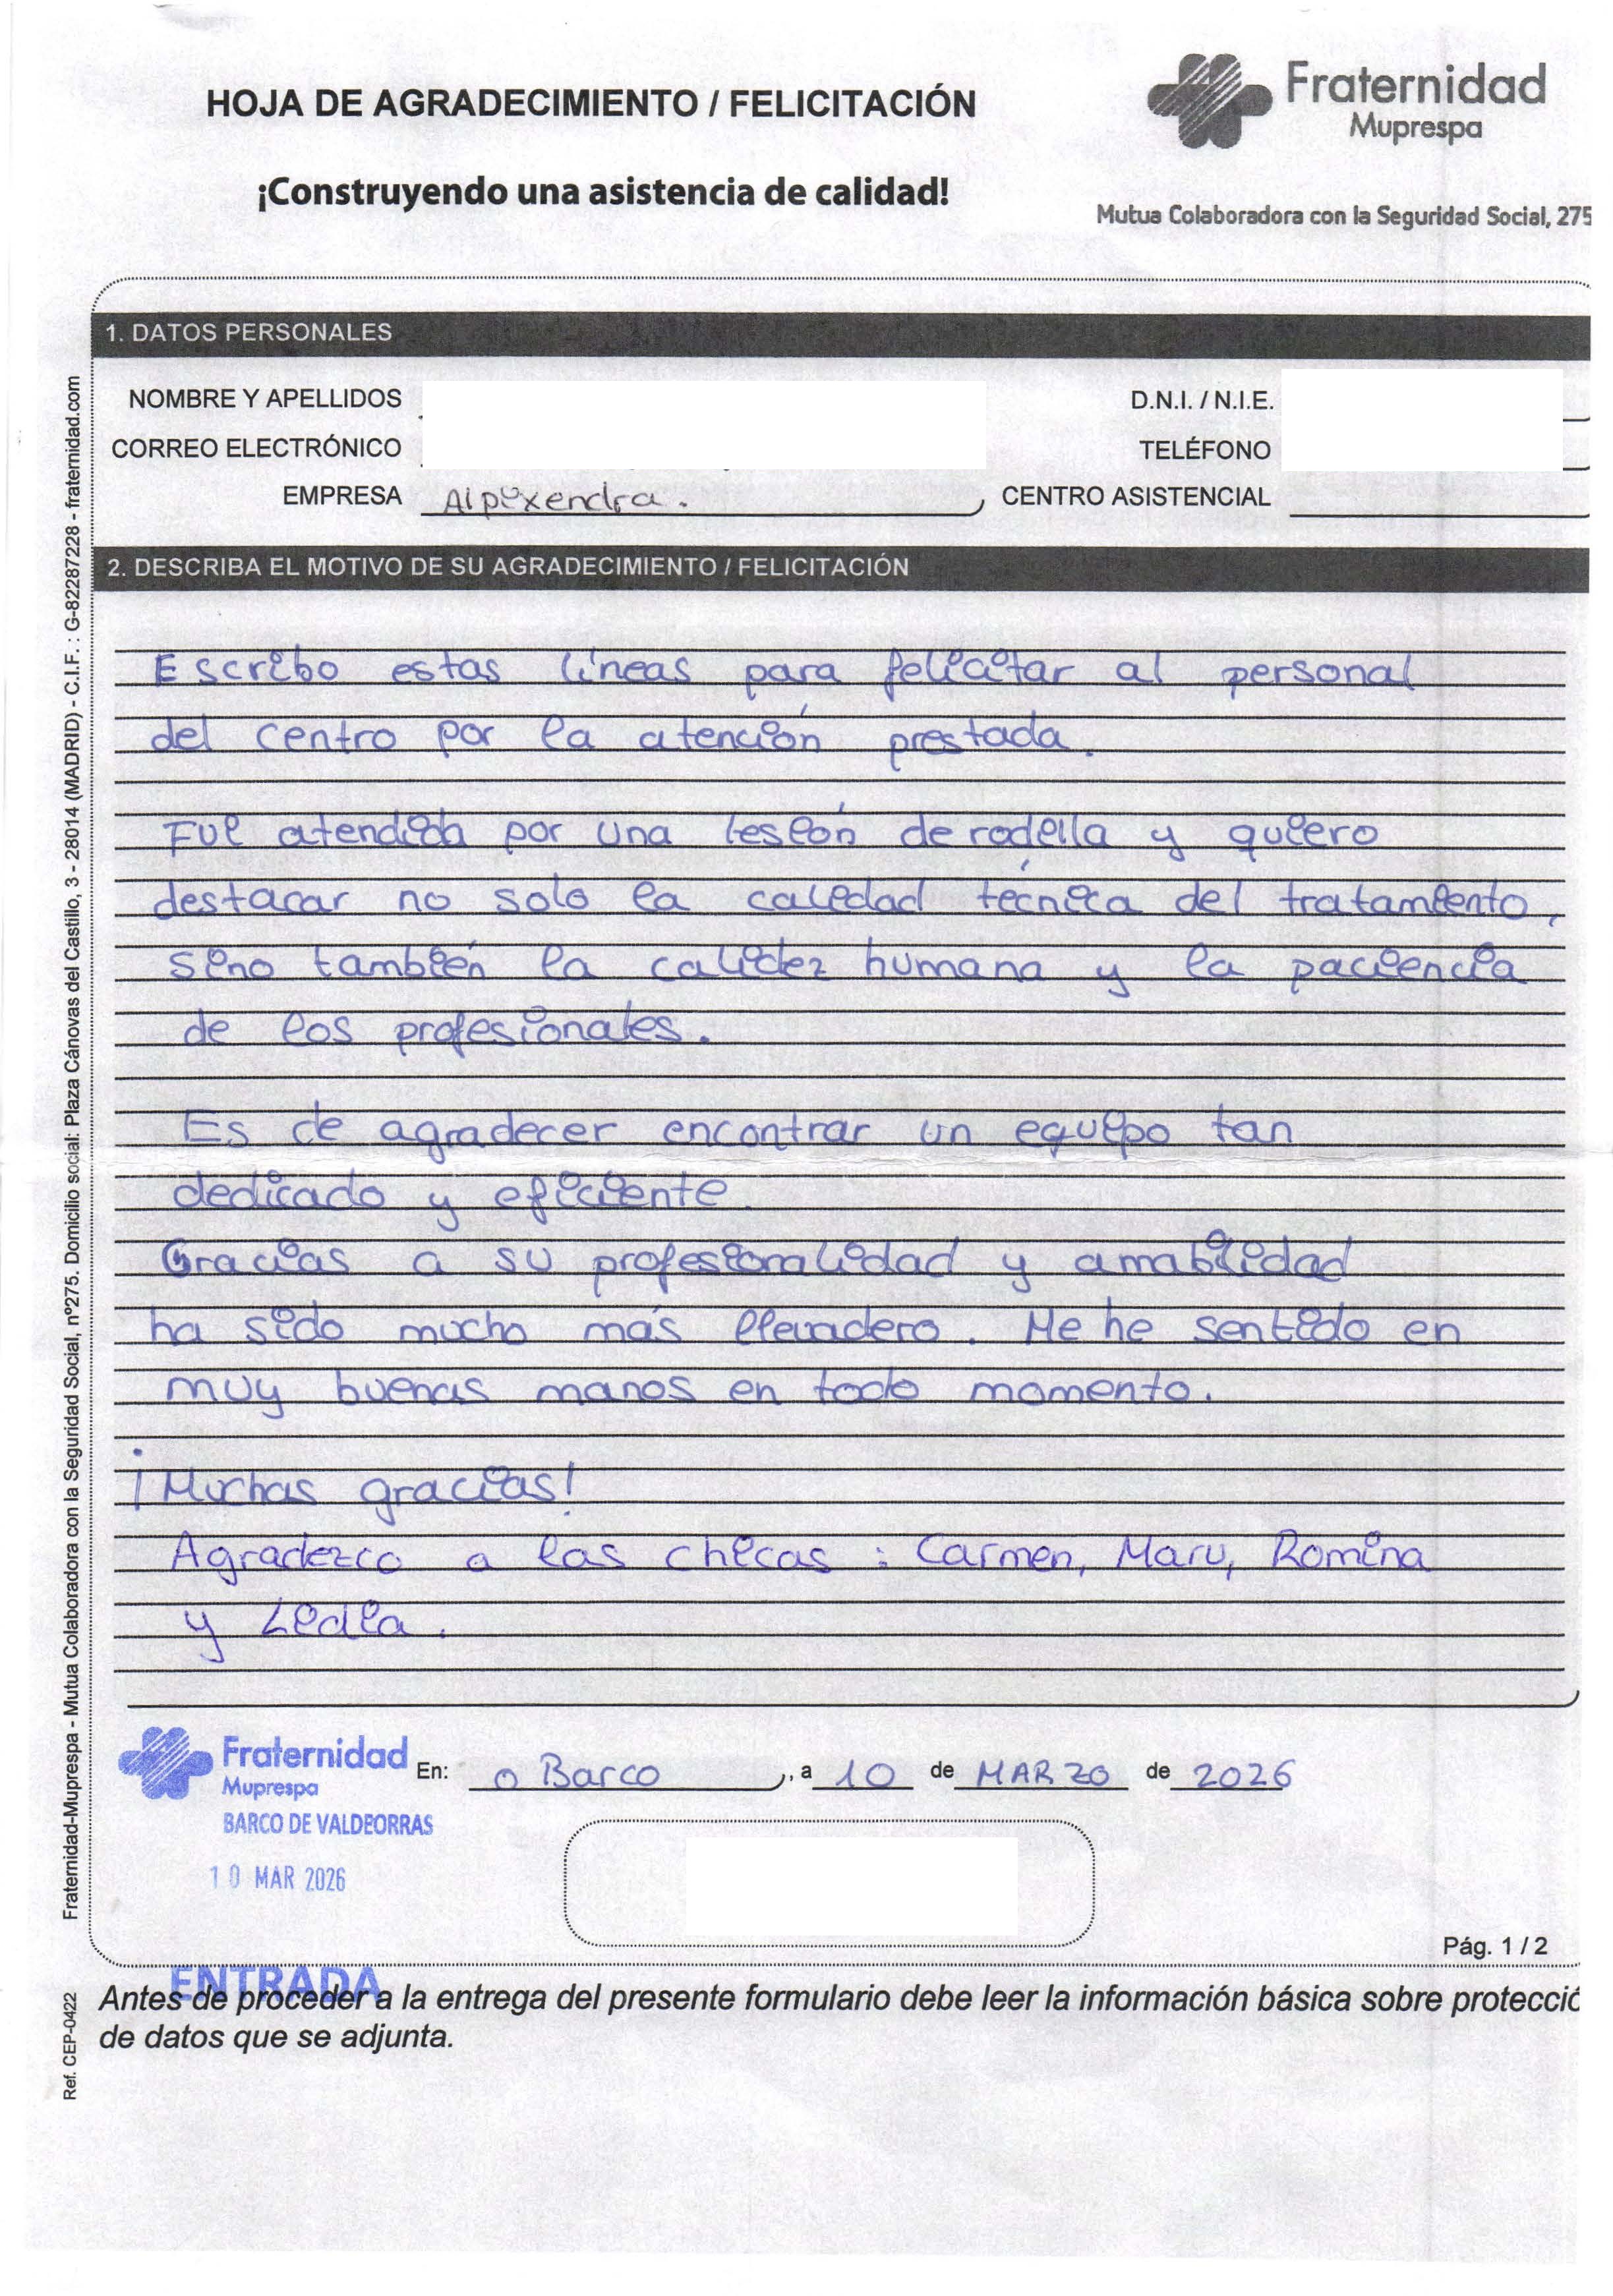 HOJA DE AGRADECIMIENTO / FELICITACIÓN
¡Construyendo una asistencia de calidad!
Fraternidad
Muprespa
Mutua Colaboradora con la Seguridad Social, 275
1. DATOS PERSONALES
NOMBRE Y APELLIDOS
D.N.I. / N.I.E.
CORREO ELECTRÓNICO
TELÉFONO
EMPRESA Alpixendra.
CENTRO ASISTENCIAL
2. DESCRIBA EL MOTIVO DE SU AGRADECIMIENTO / FELICITACIÓN
Escribo estas líneas para felicitar al personal
del centro por la atención prestada.
Fui atendida por una lesión de rodilla y quiero
destacar no solo la calidad técnica del tratamiento,
sino también la calidez humana y la paciencia
de los profesionales.
Es de agradecer encontrar un equipo tan
dedicado y eficiente.
Gracias a su profesionalidad y amabilidad
ha sido mucho más llevadero. Me he sentido en
muy buenas manos en todo momento.
¡Muchas gracias!
Agradezco a las chicas: Carmen, Maru, Romina
y Lidia.
Fraternidad
Muprespa
BARCO DE VALDEORRAS
10 MAR 2026
ENTRADA
En: O Barco, a 10 de MARZO de 2026
Pág. 1 / 2
Antes de proceder a la entrega del presente formulario debe leer la información básica sobre protecció
de datos que se adjunta.
Fraternidad-Muprespa - Mutua Colaboradora con la Seguridad Social, nº275. Domicilio social: Plaza Cánovas del Castillo, 3 - 28014 (MADRID) - C.I.F. : G-82287228 - fraternidad.com
Ref. CEP-0422